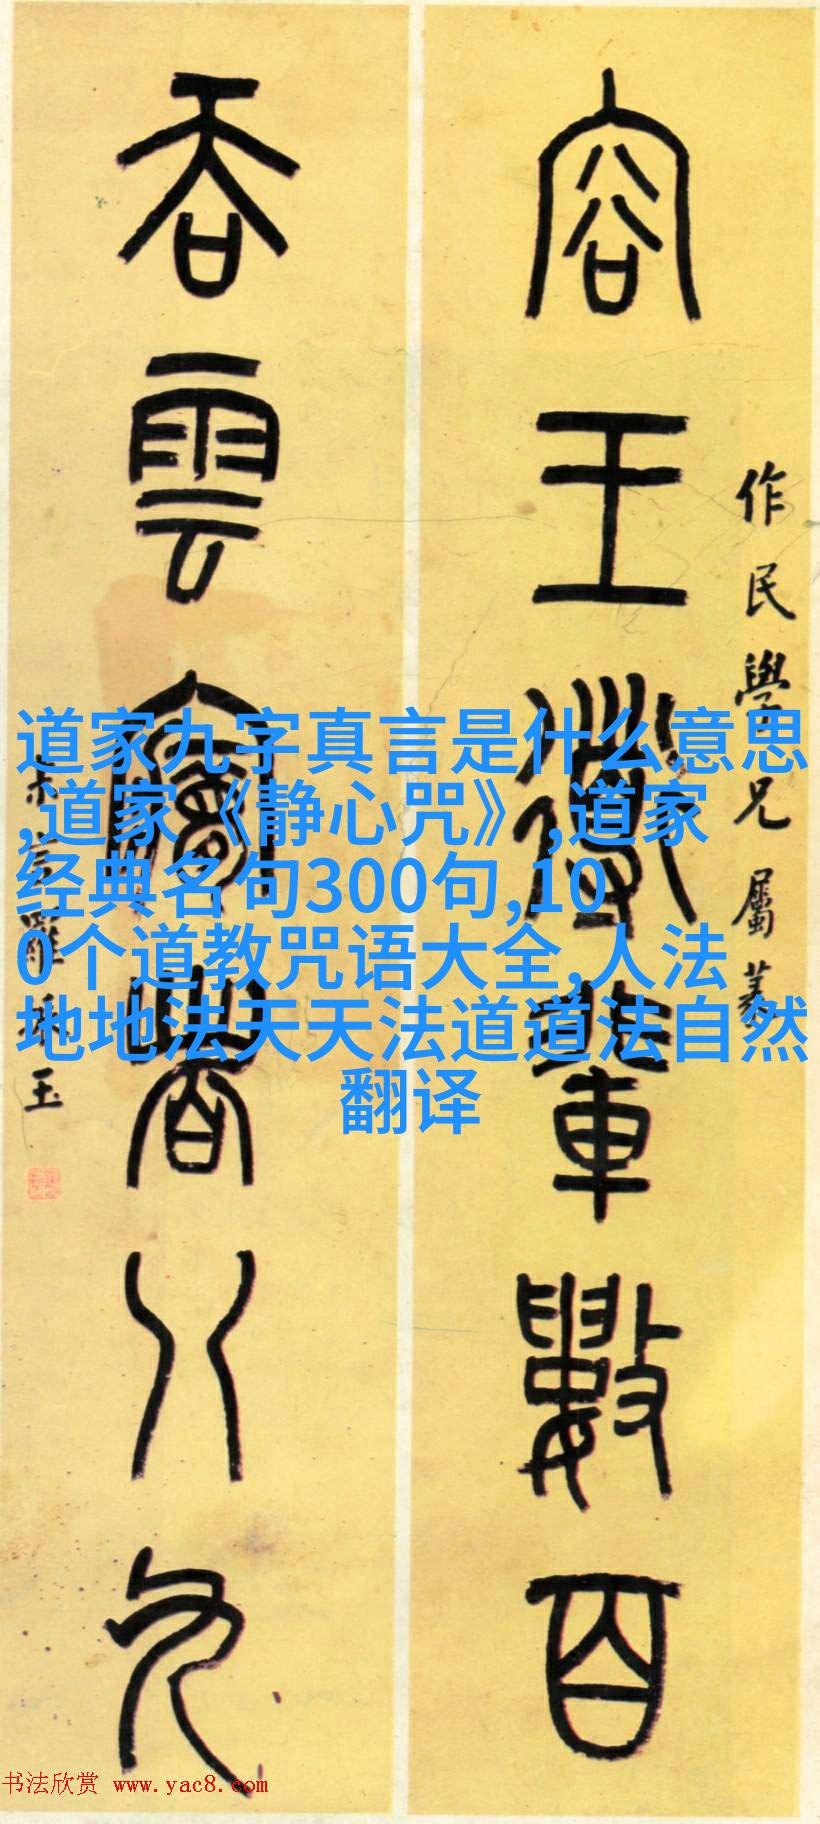 容王導輩數百
作民學兄屬篆
吞雲夢者八九
羅振玉
道家九字真言是什么意思
,道家《静心咒》,道家
经典名句300句,10
0个道教咒语大全,人法
地地法天天法道道法自然
翻译
书法欣赏 www.yac8.com